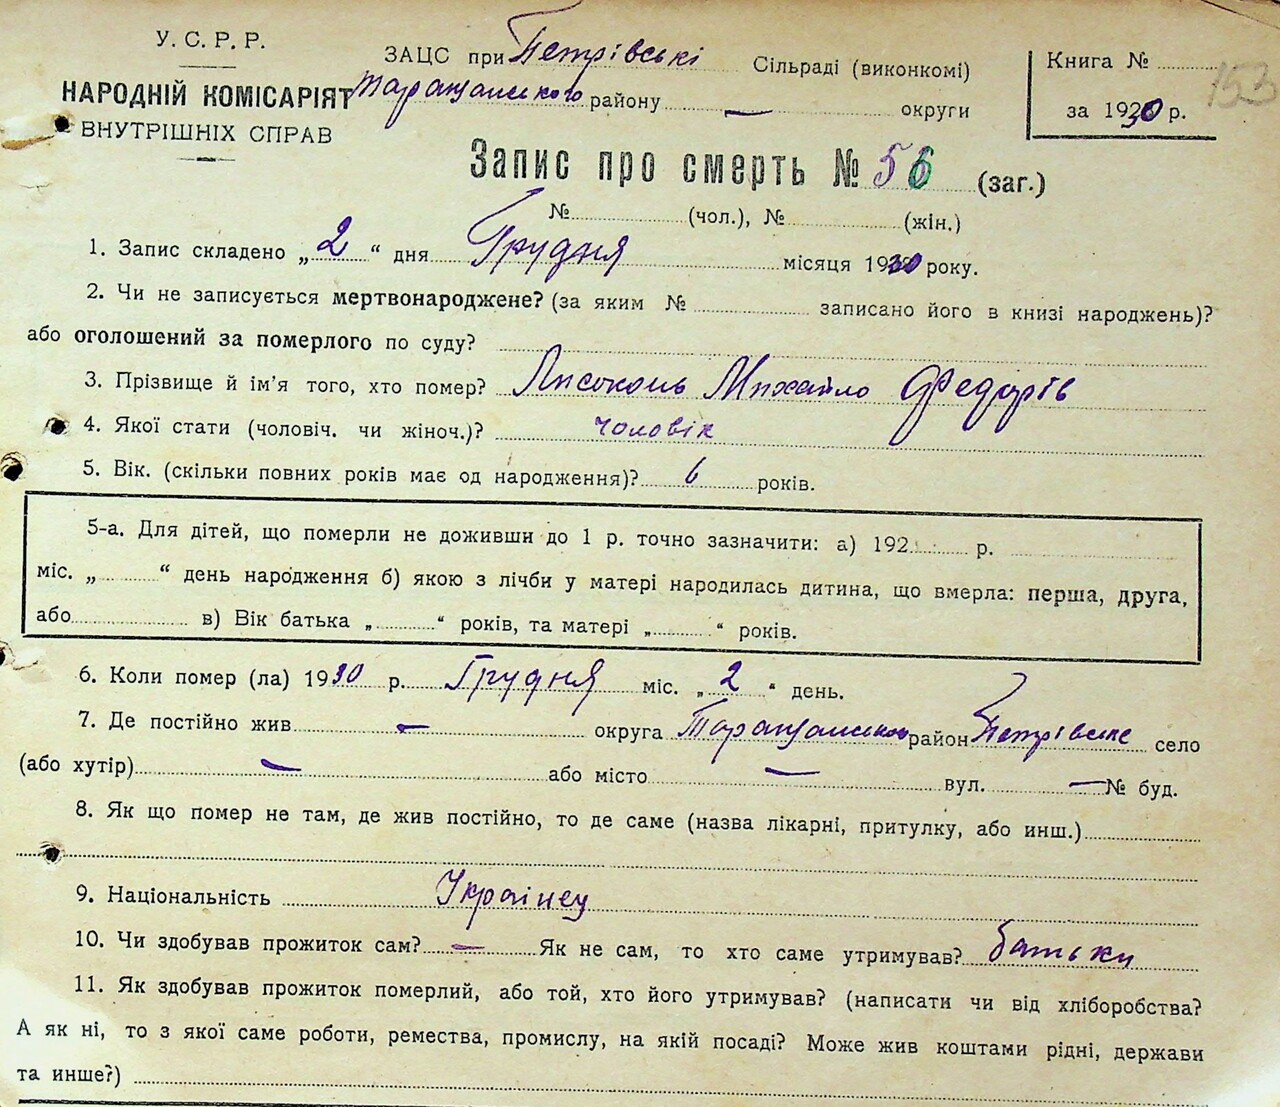 У. С. Р. Р.
НАРОДНІЙ КОМІСАРІЯТ
ВНУТРІШНІХ СПРАВ
ЗАЦС при Петрівські Сільраді (виконкомі)
Таращанського району — округи
Книга №
за 1930 р.
153
Запис про смерть № 56 (заг.)
№ (чол.), № (жін.)
1. Запис складено „2“ дня Грудня місяця 1930 року.
2. Чи не записується мертвонароджене? (за яким № записано його в книзі народжень)?
або оголошений за померлого по суду?
3. Прізвище й ім'я того, хто помер? Лисоконь Михайло Федорів
4. Якої стати (чоловіч. чи жіноч.)? чоловік
5. Вік. (скільки повних років має од народження)? 6 років.
5-а. Для дітей, що померли не доживши до 1 р. точно зазначити: а) 192 р.
міс. „ “ день народження б) якою з лічби у матері народилась дитина, що вмерла: перша, друга,
або в) Вік батька „ “ років, та матері „ “ років.
6. Коли помер (ла) 1930 р. Грудня міс. „2“ день.
7. Де постійно жив — округа Таращанського район Петрівське село
(або хутір) — або місто — вул. — № буд.
8. Як що помер не там, де жив постійно, то де саме (назва лікарні, притулку, або инш.)
9. Національність Українец
10. Чи здобував прожиток сам? — Як не сам, то хто саме утримував? батьки
11. Як здобував прожиток померлий, або той, хто його утримував? (написати чи від хліборобства?
А як ні, то з якої саме роботи, ремества, промислу, на якій посаді? Може жив коштами рідні, держави
та инше?)